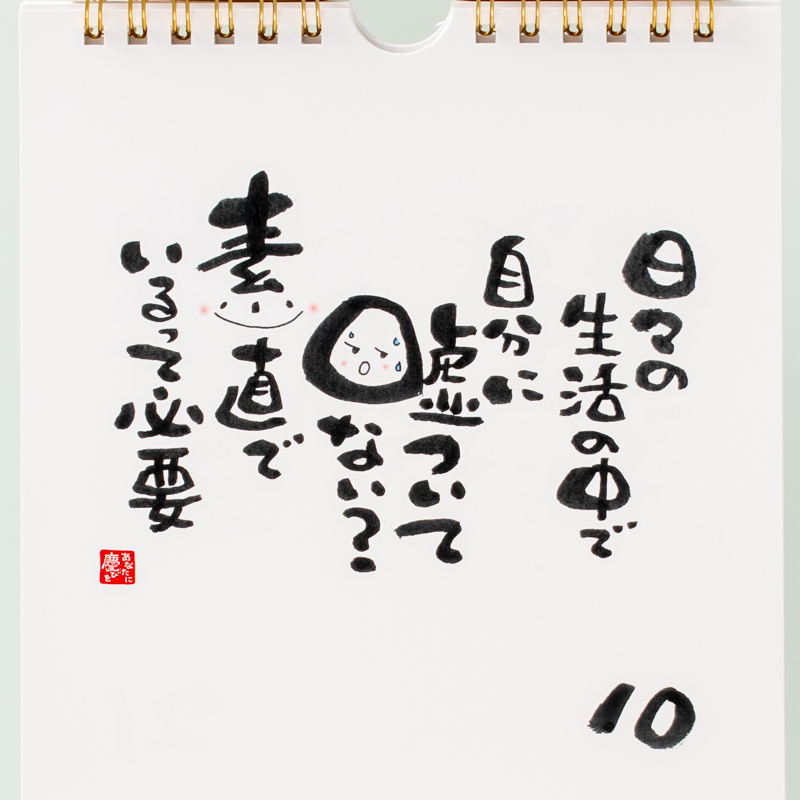 日々の
生活の中で
自分に
嘘ついて
ない?
素直で
いるって必要
あなたに
慶びを
10